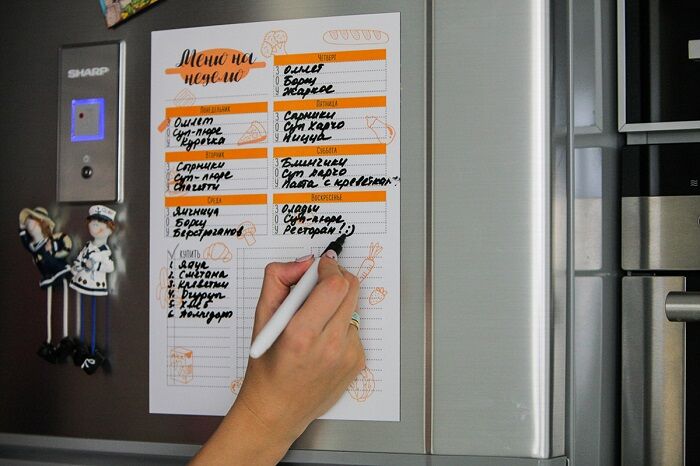 SHARP
Меню на
неделю
ПОНЕДЕЛЬНИК
З Омлет
О Суп-пюре
У Курочка
ВТОРНИК
З Сырники
О Суп-пюре
У Спагетти
СРЕДА
З Яичница
О Борщ
У Бефстроганов
ЧЕТВЕРГ
З Омлет
О Борщ
У Жаркое
ПЯТНИЦА
З Сырники
О Суп харчо
У Пицца
СУББОТА
З Блинчики
О Суп харчо
У Паста с креветками
ВОСКРЕСЕНЬЕ
З Оладьи
О Суп-пюре
У Ресторан!:)
КУПИТЬ
1. Яйца
2. Сметана
3. Креветки
4. Йогурт
5. Хлеб
6. Помидоры